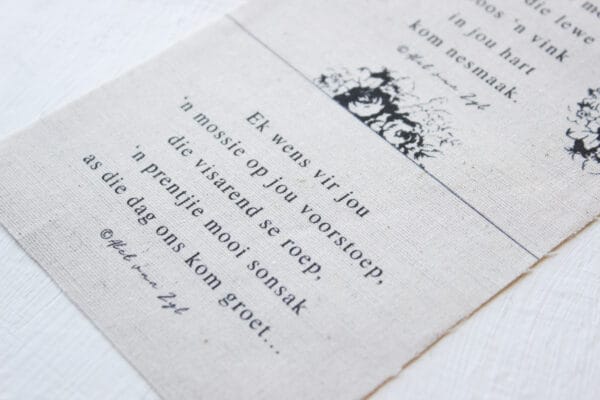 die lewe
oos 'n vink
in jou hart
kom nesmaak.
Ek wens vir jou
'n mossie op jou voorstoep,
die visarend se roep,
'n prentjie mooi sonsak
as die dag ons kom groet...